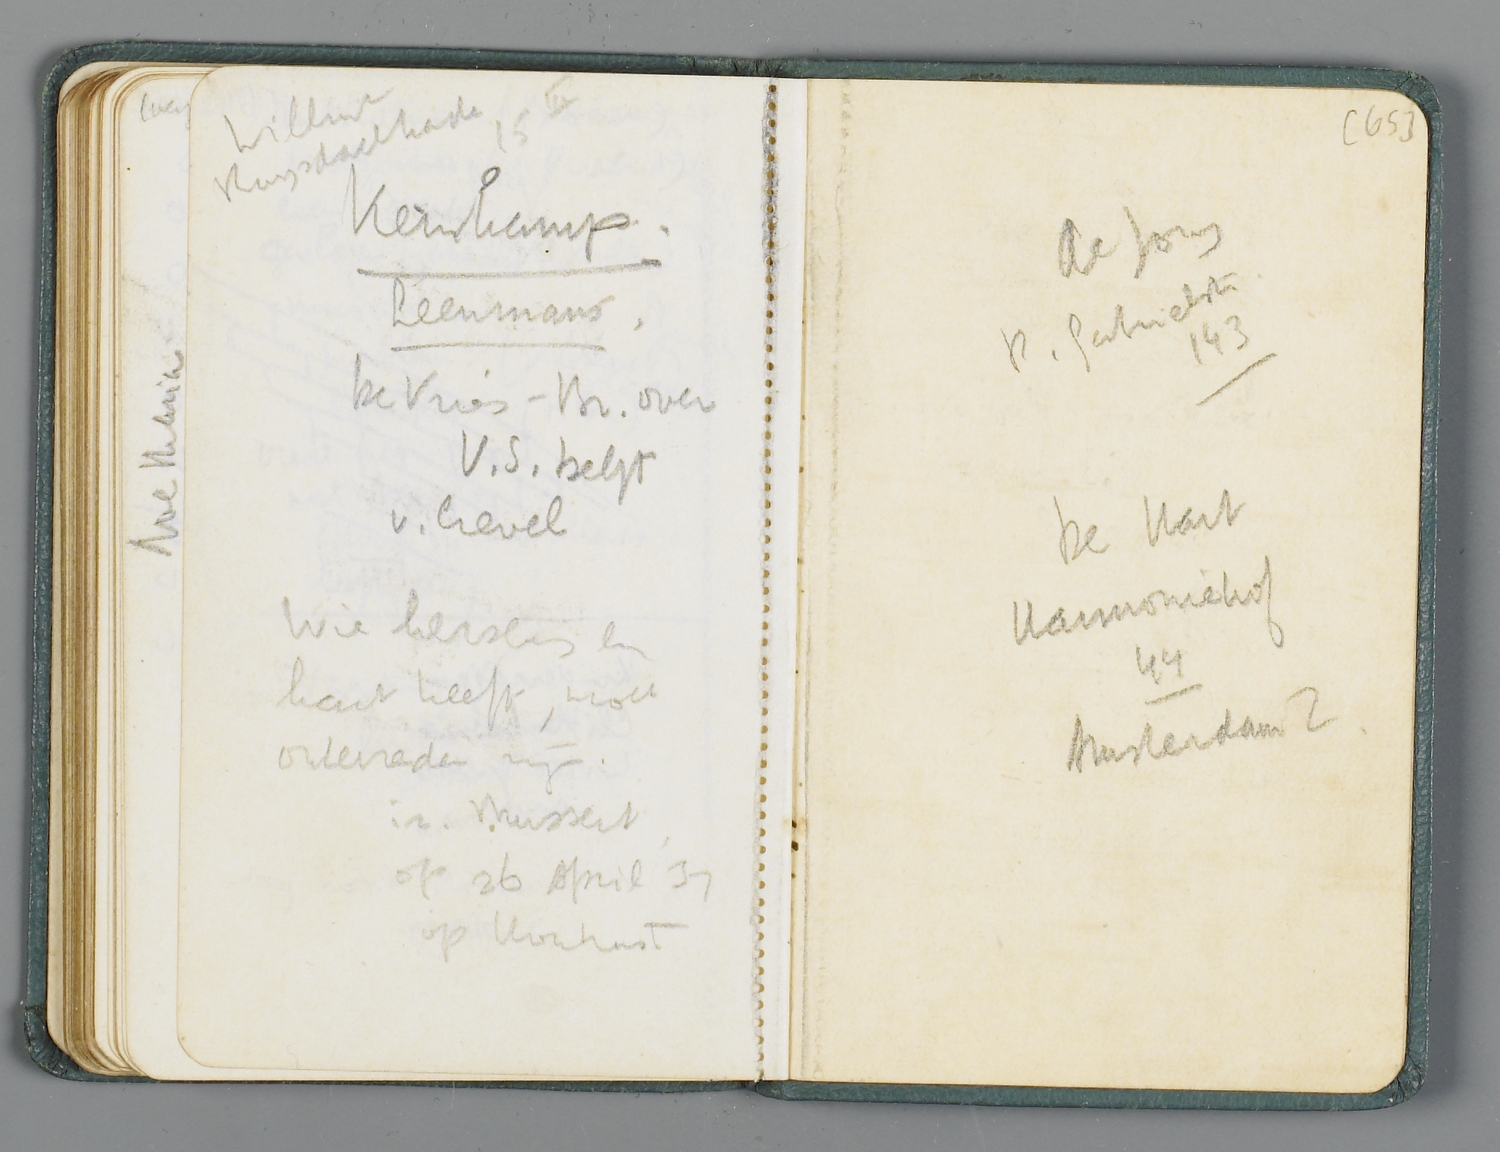 Willink
Ruysdaelkade 15 III
Kernkamp.
Leenmans,
de Vries - Br. over
V.S. helpt
v. Crevel
Wie hersens en
hart heeft, moet
ontevreden zijn.
ir. Mussert,
op 26 April '37
op Houtrust
[65]
de Jong
P. Gabrielstr
143
de Hart
Harmoniehof
44
Amsterdam Z.